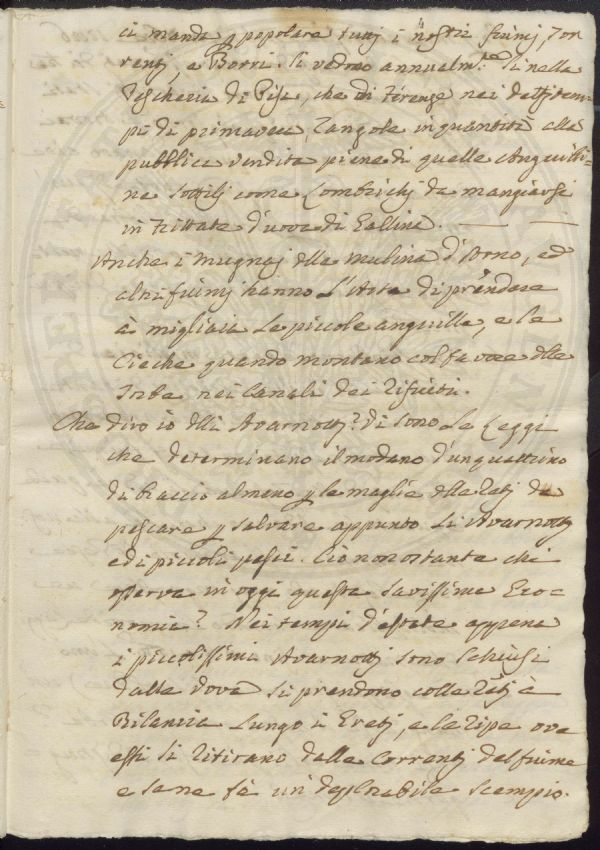 ci manda p popolare tutti i nostri fiumi, Tor-
renti, e Borri. Si vedono annualm.te sì nella
Pescheria di Pisa, che di Firenze nei detti tem-
pi di primavera, Zangole in quantità alla
pubblica vendita piene di quelle Anguilli-
ne sottili come Lombrichi da mangiarsi
in frittate d'uova di Galline.
Anche i Mugnaj delle Mulina d'Arno, ed
altri fiumi hanno l'Arte di prendere
à migliaia le piccole anguille, e le
Cieche quando montano col favore delle
Torbe nei Canali dei Rifiuti.
Che dirò io delli Avannotti? Vi sono le Leggi
che determinano il modano d'un quattrino
di braccio almeno p le maglie delle Reti da
pescare p salvare appunto li Avannotti
ed i piccoli pesci. Ciò non ostante chi
osserva in oggi questa savissima Eco-
nomia? Nei tempi d'estate appena
i piccolissimi Avannotti sono schiusi
dalle Uova si prendono colle Reti à
Bilancia lungo i Greti, e le ripe ove
essi si ritirano dalle Correnti del fiume
e se ne fà un deplorabile scempio.